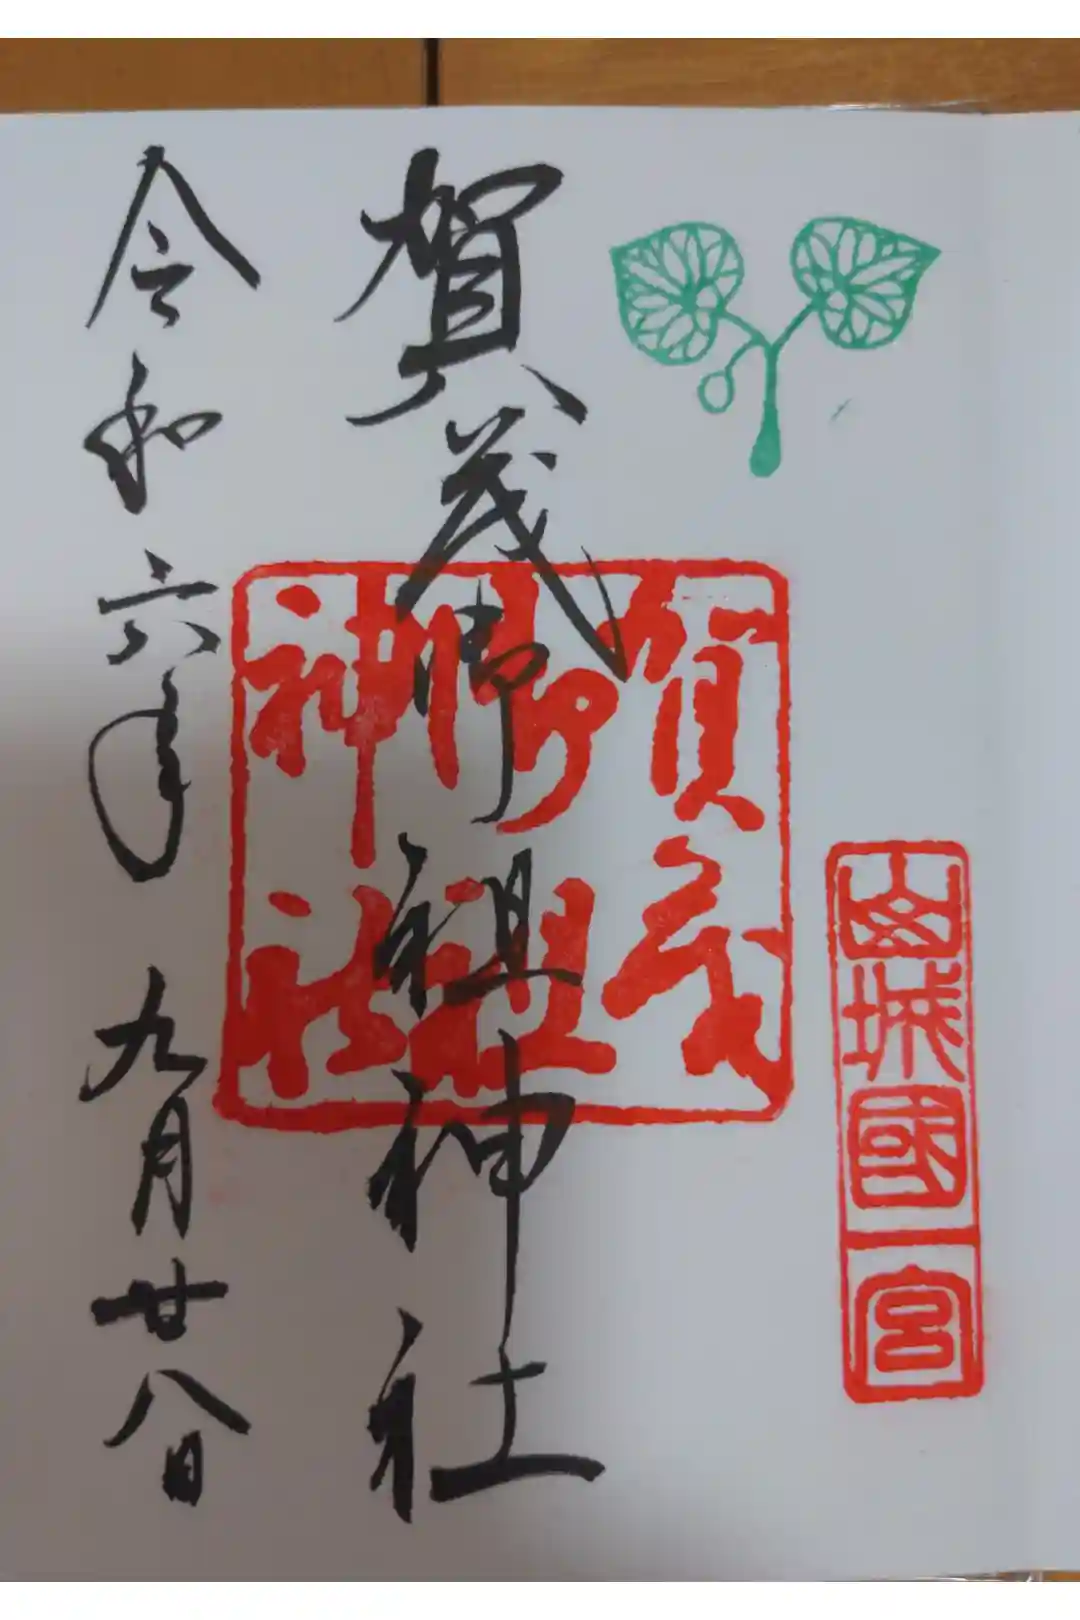 山城國一宮
賀茂御祖神社
賀茂
御祖
神社
令和六年九月廿八日